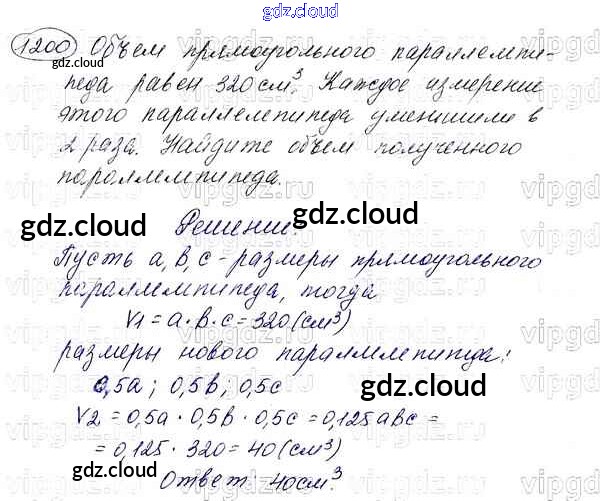 gdz.cloud
1200 Объем прямоугольного параллелепи-
педа равен 320 см³. Каждое измерение
gdz.cloud
этого параллелепипеда уменьшили в
2 раза. Найдите объем полученного
параллелепипеда.
gdz.cloud gdz.cloud
Решение:
Пусть a, b, c - размеры прямоугольного
параллелепипеда, тогда
V1 = a · b · c = 320 (см³)
размеры нового параллелепипеда:
0,5a ; 0,5b ; 0,5c
gdz.cloud gdz.cloud
V2 = 0,5a · 0,5b · 0,5c = 0,125abc =
= 0,125 · 320 = 40 (см³)
gdz.cloud
Ответ 40 см³.
gdz.cloud